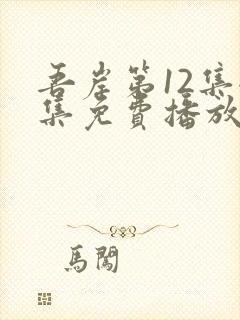 吾岸第12集
集免費播放
馬闖